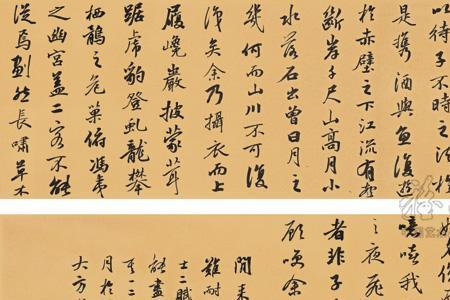 以待子不時之須於
是攜酒與魚復遊
於赤壁之下江流有聲
斷岸千尺山高月小
水落石出曾日月之
幾何而山川不可復
識矣余乃攝衣而上
履巉巖披蒙茸
踞虎豹登虬龍攀
栖鶻之危巢俯馮夷
之幽宮蓋二客不能
從焉劃然長嘯草木
噫嘻我
之夜飛
者非子
顧笑余
閒来
雖耐
士二賦
能盡
一二
月於
大方